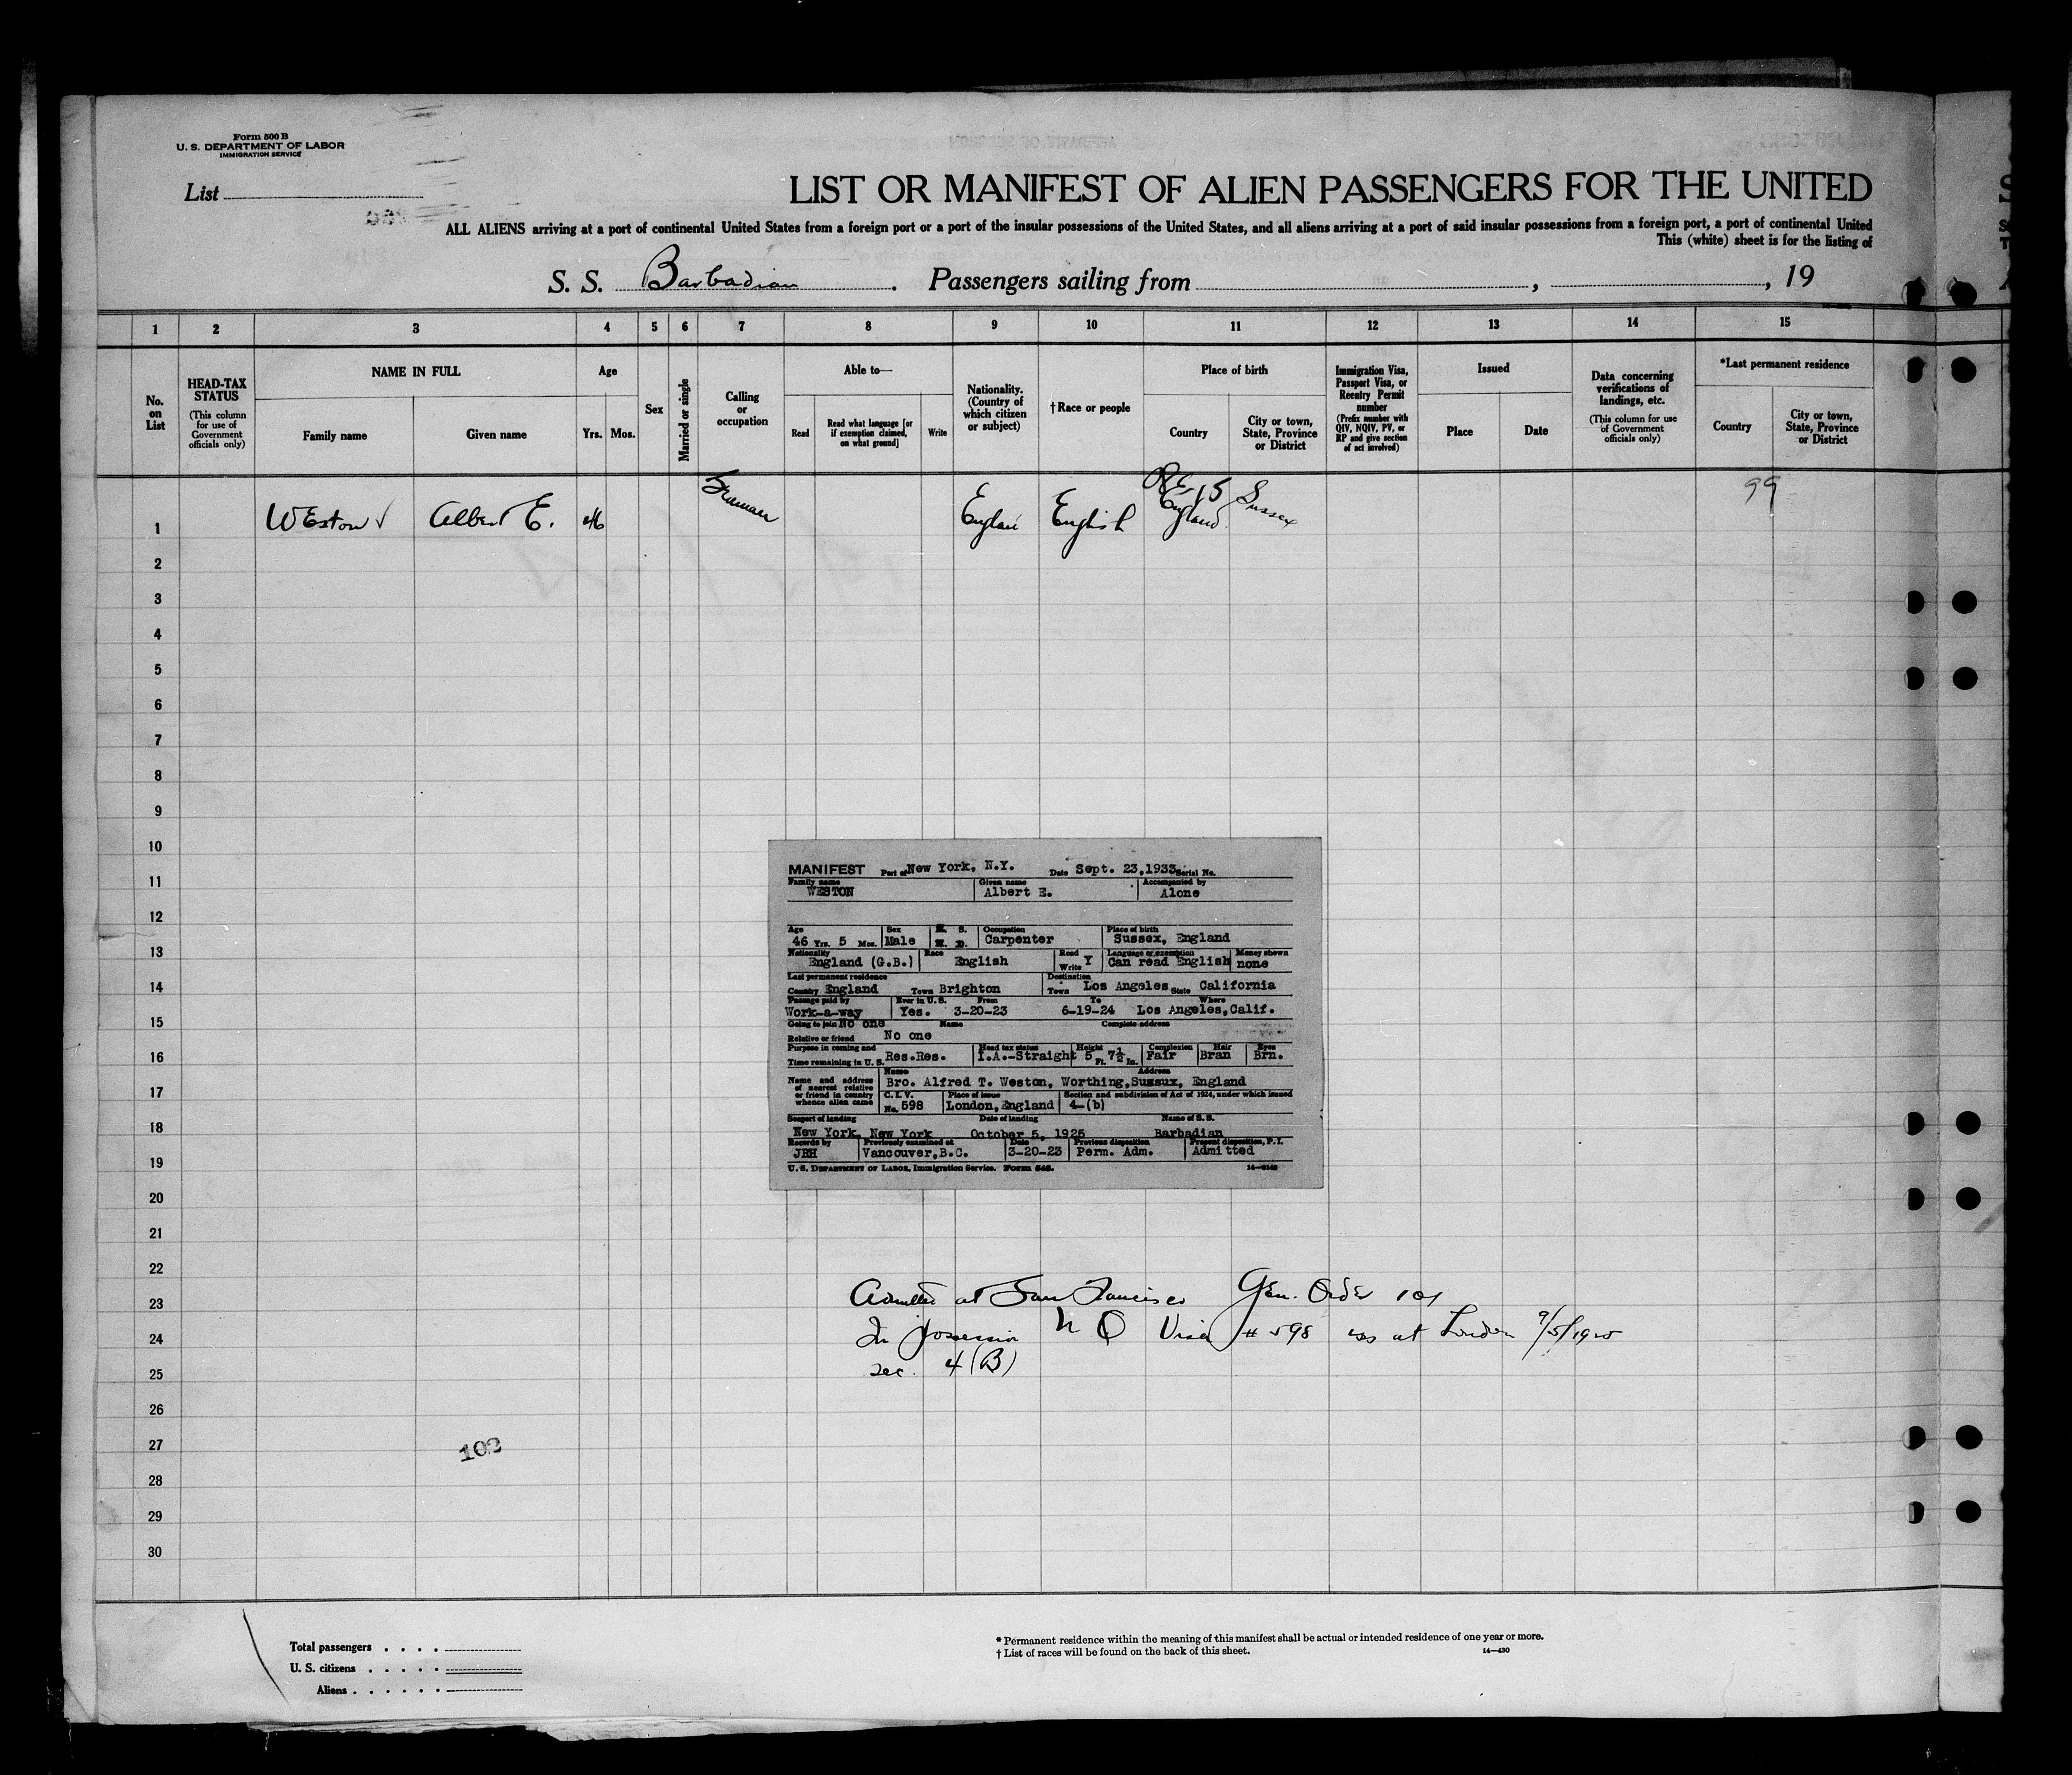 Form 500 B
U. S. DEPARTMENT OF LABOR
IMMIGRATION SERVICE
List
LIST OR MANIFEST OF ALIEN PASSENGERS FOR THE UNITED
ALL ALIENS arriving at a port of continental United States from a foreign port or a port of the insular possessions of the United States, and all aliens arriving at a port of said insular possessions from a foreign port, a port of continental United
This (white) sheet is for the listing of
S. S. Barbadian. Passengers sailing from , , 19
1 2 3 4 5 6 7 8 9 10 11 12 13 14 15
No. on List
HEAD-TAX STATUS (This column for use of Government officials only)
NAME IN FULL
Family name Given name
Age
Yrs. Mos.
Sex
Married or single
Calling or occupation
Able to—
Read Read what language [or if exemption claimed, on what ground] Write
Nationality. (Country of which citizen or subject)
†Race or people
Place of birth
Country City or town, State, Province or District
Immigration Visa, Passport Visa, or Reentry Permit number (Prefix number with QIV, NQIV, PV, or RP and give section of act involved)
Issued
Place Date
Data concerning verifications of landings, etc. (This column for use of Government officials only)
*Last permanent residence
Country City or town, State, Province or District
1 Weston Albert E. 46 English England Sussex 99
2
3
4
5
6
7
8
9
10
11
12
13
14
15
16
17
18
19
20
21
22
23
24
25
26
27
28
29
30
MANIFEST Port of New York, N.Y. Date Sept. 23, 1933 Serial No.
Family name Given name Accompanied by
WESTON Albert E. Alone
Age Sex M. S. Occupation Place of birth
46 Yrs. 5 Mos. Male W. D. Carpenter Sussex, England
Nationality Race Read Language or exemption Money shown
England (G.B.) English Write Y Can read English none
Last permanent residence Destination
Country England Town Brighton Town Los Angeles State California
Passage paid by Ever in U. S. From To Where
Work-a-way Yes. 3-20-23 6-19-24 Los Angeles, Calif.
Going to join No one Name Complete address
Relative or friend No one
Purpose in coming and Head tax status Height Complexion Hair Eyes
Time remaining in U. S. Res.Res. I.A.-Straight 5 Ft. 7½ In. Fair Bran Brn.
Name Address
Name and address of nearest relative or friend in country whence alien came Bro. Alfred T. Weston, Worthing, Sussux, England
C. I. V. Place of issue Section and subdivision of Act of 1924, under which issued
No. 598 London, England 4-(b)
Seaport of landing Date of landing Name of S. S.
New York, New York October 5, 1925 Barbadian
Records by Previously examined at Date Previous disposition Present disposition, P. I.
JRH Vancouver, B.C. 3-20-23 Perm. Adm. Admitted
U. S. DEPARTMENT OF LABOR, Immigration Service. FORM 548.
Admitted at San Francisco Gen. Order
In possession N Q Visa # 598 iss at London 9/5/1925
sec. 4 (B)
102
Total passengers . . . .
U. S. citizens . . . . .
Aliens . . . . . .
* Permanent residence within the meaning of this manifest shall be actual or intended residence of one year or more.
† List of races will be found on the back of this sheet. 14—430